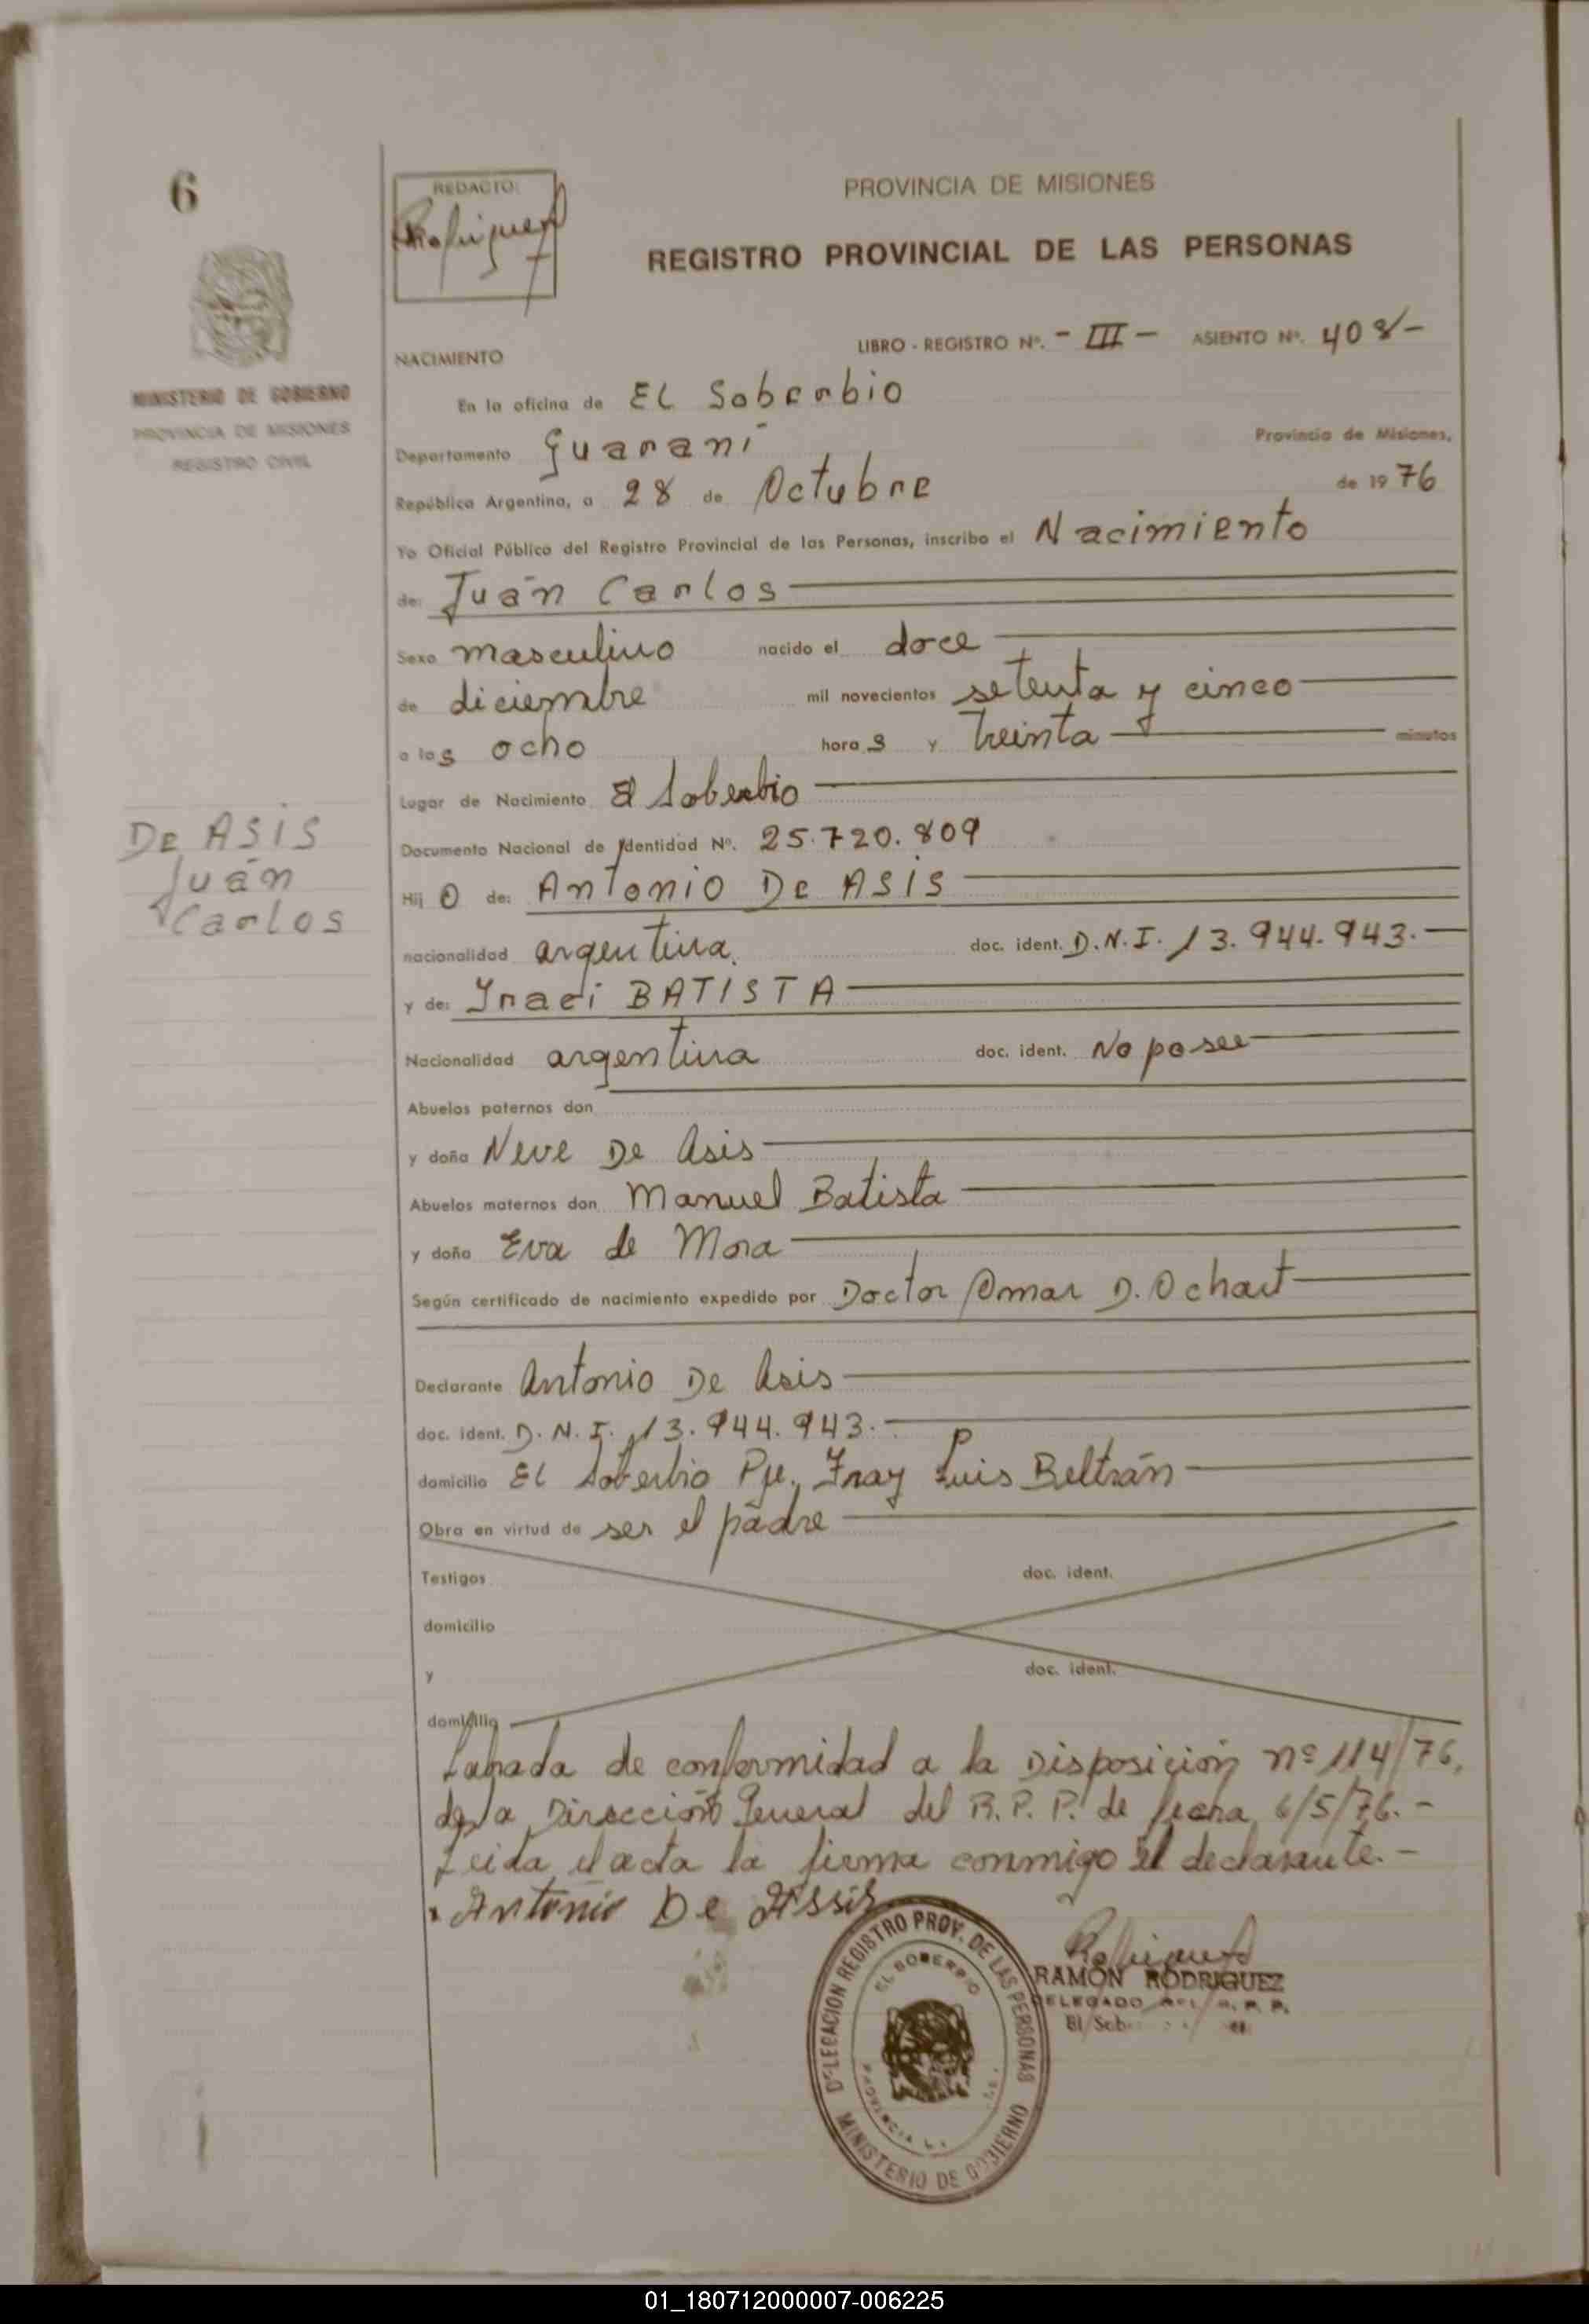 6
REDACTO:
PROVINCIA DE MISIONES
REGISTRO PROVINCIAL DE LAS PERSONAS
MINISTERIO DE GOBIERNO
PROVINCIA DE MISIONES
REGISTRO CIVIL
NACIMIENTO
LIBRO - REGISTRO Nº. - III - ASIENTO Nº. 408-
En la oficina de EL Soberbio
Departamento Guaraní Provincia de Misiones,
República Argentina, a 28 de Octubre de 1976
Yo Oficial Público del Registro Provincial de las Personas, inscribo el Nacimiento
de: Juán Carlos
Sexo masculino nacido el doce
de diciembre mil novecientos setenta y cinco
a las ocho horas y treinta minutos
Lugar de Nacimiento El Soberbio
Documento Nacional de Identidad Nº. 25.720.809
DE ASIS
Juán
Carlos
Hijo de: Antonio De ASIS
nacionalidad argentina. doc. ident. D.N.I. 13.944.943.-
y de: Iraci BATISTA
Nacionalidad argentina doc. ident. No posee
Abuelos paternos don
y doña Neve De Asis
Abuelos maternos don Manuel Batista
y doña Eva de Mora
Según certificado de nacimiento expedido por Doctor Omar D. Ochart
Declarante Antonio De Asis
doc. ident. D.N.I. 13.944.943.-
domicilio EL Soberbio Pje. Fray Luis Beltrán
Obra en virtud de ser el padre
Testigos doc. ident.
domicilio
y doc. ident.
domicilio
Labrada de conformidad a la Disposición nº 114/76,
de la Dirección General del R.P.P. de fecha 6/5/76.-
Leida el acta la firma conmigo el declarante.-
Antonio De Assis
DELEGACION REGISTRO PROV. DE LAS PERSONAS
EL SOBERBIO
MINISTERIO DE GOBIERNO
RAMÓN RODRIGUEZ
DELEGADO DEL R. P. P.
01_180712000007-006225